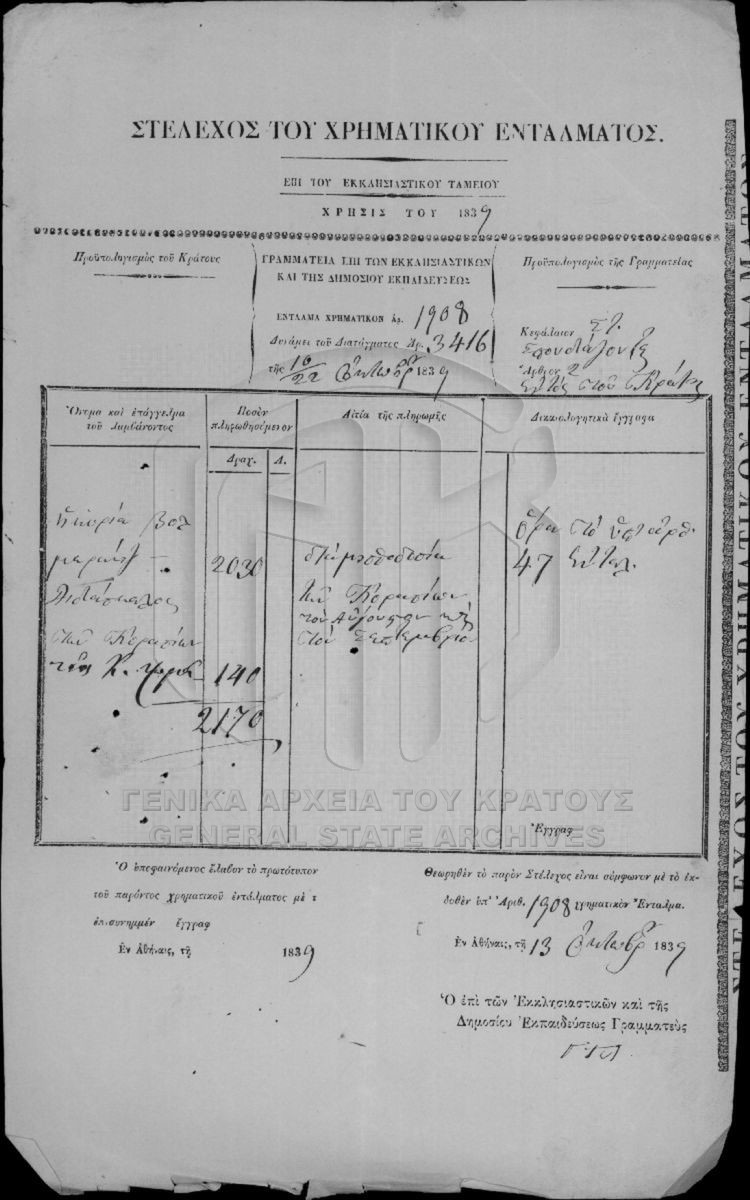 ΣΤΕΛΕΧΟΣ ΤΟΥ ΧΡΗΜΑΤΙΚΟΥ ΕΝΤΑΛΜΑΤΟΣ.
ΕΠΙ ΤΟΥ ΕΚΚΛΗΣΙΑΣΤΙΚΟΥ ΤΑΜΕΙΟΥ
ΧΡΗΣΙΣ ΤΟΥ 1839
Προϋπολογισμὸς τοῦ Κράτους
ΓΡΑΜΜΑΤΕΙΑ ΕΠΙ ΤΩΝ ΕΚΚΛΗΣΙΑΣΤΙΚΩΝ
ΚΑΙ ΤΗΣ ΔΗΜΟΣΙΟΥ ΕΚΠΑΙΔΕΥΣΕΩΣ
ΕΝΤΑΛΜΑ ΧΡΗΜΑΤΙΚΟΝ ΑΡ. 1908
Δυνάμει τοῦ Διατάγματος Ἀρ. 3416
τῆς 10/22 Ὀκτωβρ 1839
Προϋπολογισμὸς τῆς Γραμματείας
Κεφάλαιον
Ἄρθρον 2
Ὄνομα καὶ ἐπάγγελμα
τοῦ Λαμβάνοντος
Ποσὸν
πληρωθησόμενον
Δραχ. Λ.
Αἰτία τῆς πληρωμῆς
Δικαιολογητικὰ ἔγγραφα
2030
47
τῶν Κορασίων
τὸν Αὔγουστον
τὸν Σεπτέμβριον
Διδάσκαλος
τῶν Κορασίων
140
2170
ΓΕΝΙΚΑ ΑΡΧΕΙΑ ΤΟΥ ΚΡΑΤΟΥΣ
GENERAL STATE ARCHIVES
Ἔγγραφ
Ὁ ὑποφαινόμενος ἔλαβον τὸ πρωτότυπον
τοῦ παρόντος χρηματικοῦ ἐντάλματος μὲ τ
ἐπισυνημμέν ἔγγραφ
Ἐν Ἀθήναις, τῇ 1839
Θεωρηθὲν τὸ παρὸν Στέλεχος εἶναι σύμφωνον μὲ τὸ ἐκ-
δοθὲν ὑπ' Ἀριθ. 1908 χρηματικὸν Ἔνταλμα.
Ἐν Ἀθήναις, τῇ 13 Ὀκτωβρ 1839
Ὁ ἐπὶ τῶν Ἐκκλησιαστικῶν καὶ τῆς
Δημοσίου Ἐκπαιδεύσεως Γραμματεὺς
ΣΤΕΛΕΧΟΣ ΤΟΥ ΧΡΗΜΑΤΙΚΟΥ ΕΝΤΑΛΜΑΤΟΣ